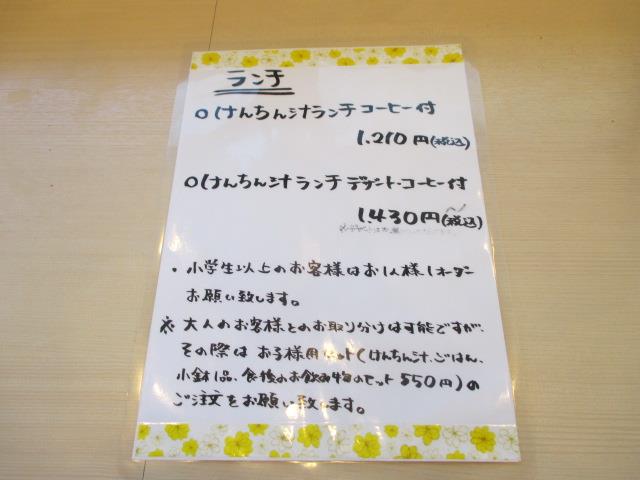 ランチ
○けんちん汁ランチ コーヒー付
1.210円(税込)
○けんちん汁ランチ デザート・コーヒー付
1.430円〜(税込)
・小学生以上のお客様はお1人様1オーダー
お願い致します。
※大人のお客様とのお取り分けは可能ですが、
その際は お子様用セット(けんちん汁、ごはん、
小鉢1品、食後のお飲み物のセット 550円)の
ご注文をお願い致します。